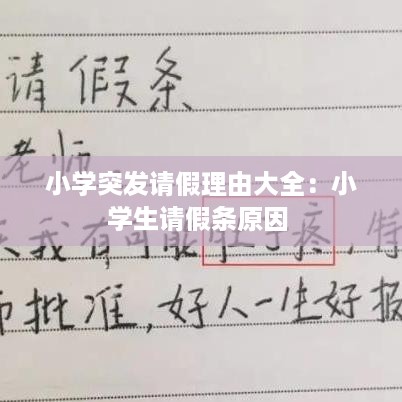 请假条
老师
小学突发请假理由大全：小
学生请假条原因
天我有可能肚子疼，特
师批准，好人一生好报